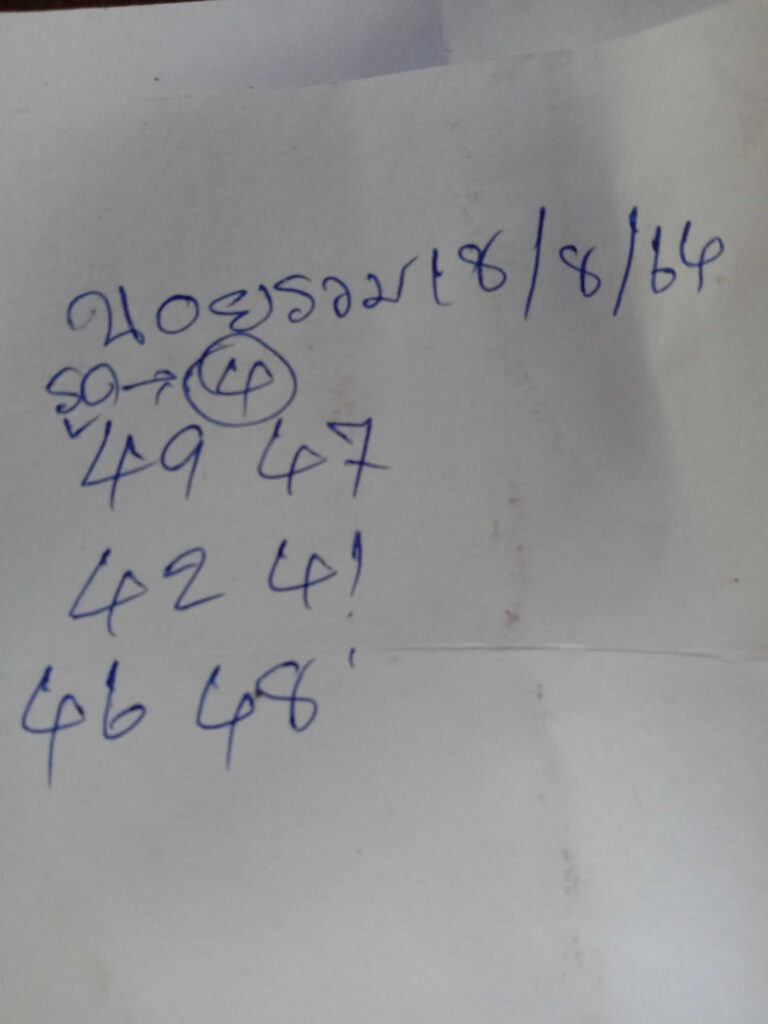 ฆอยรวม 18/8/64
รูด→4
49 47
42 41
46 48